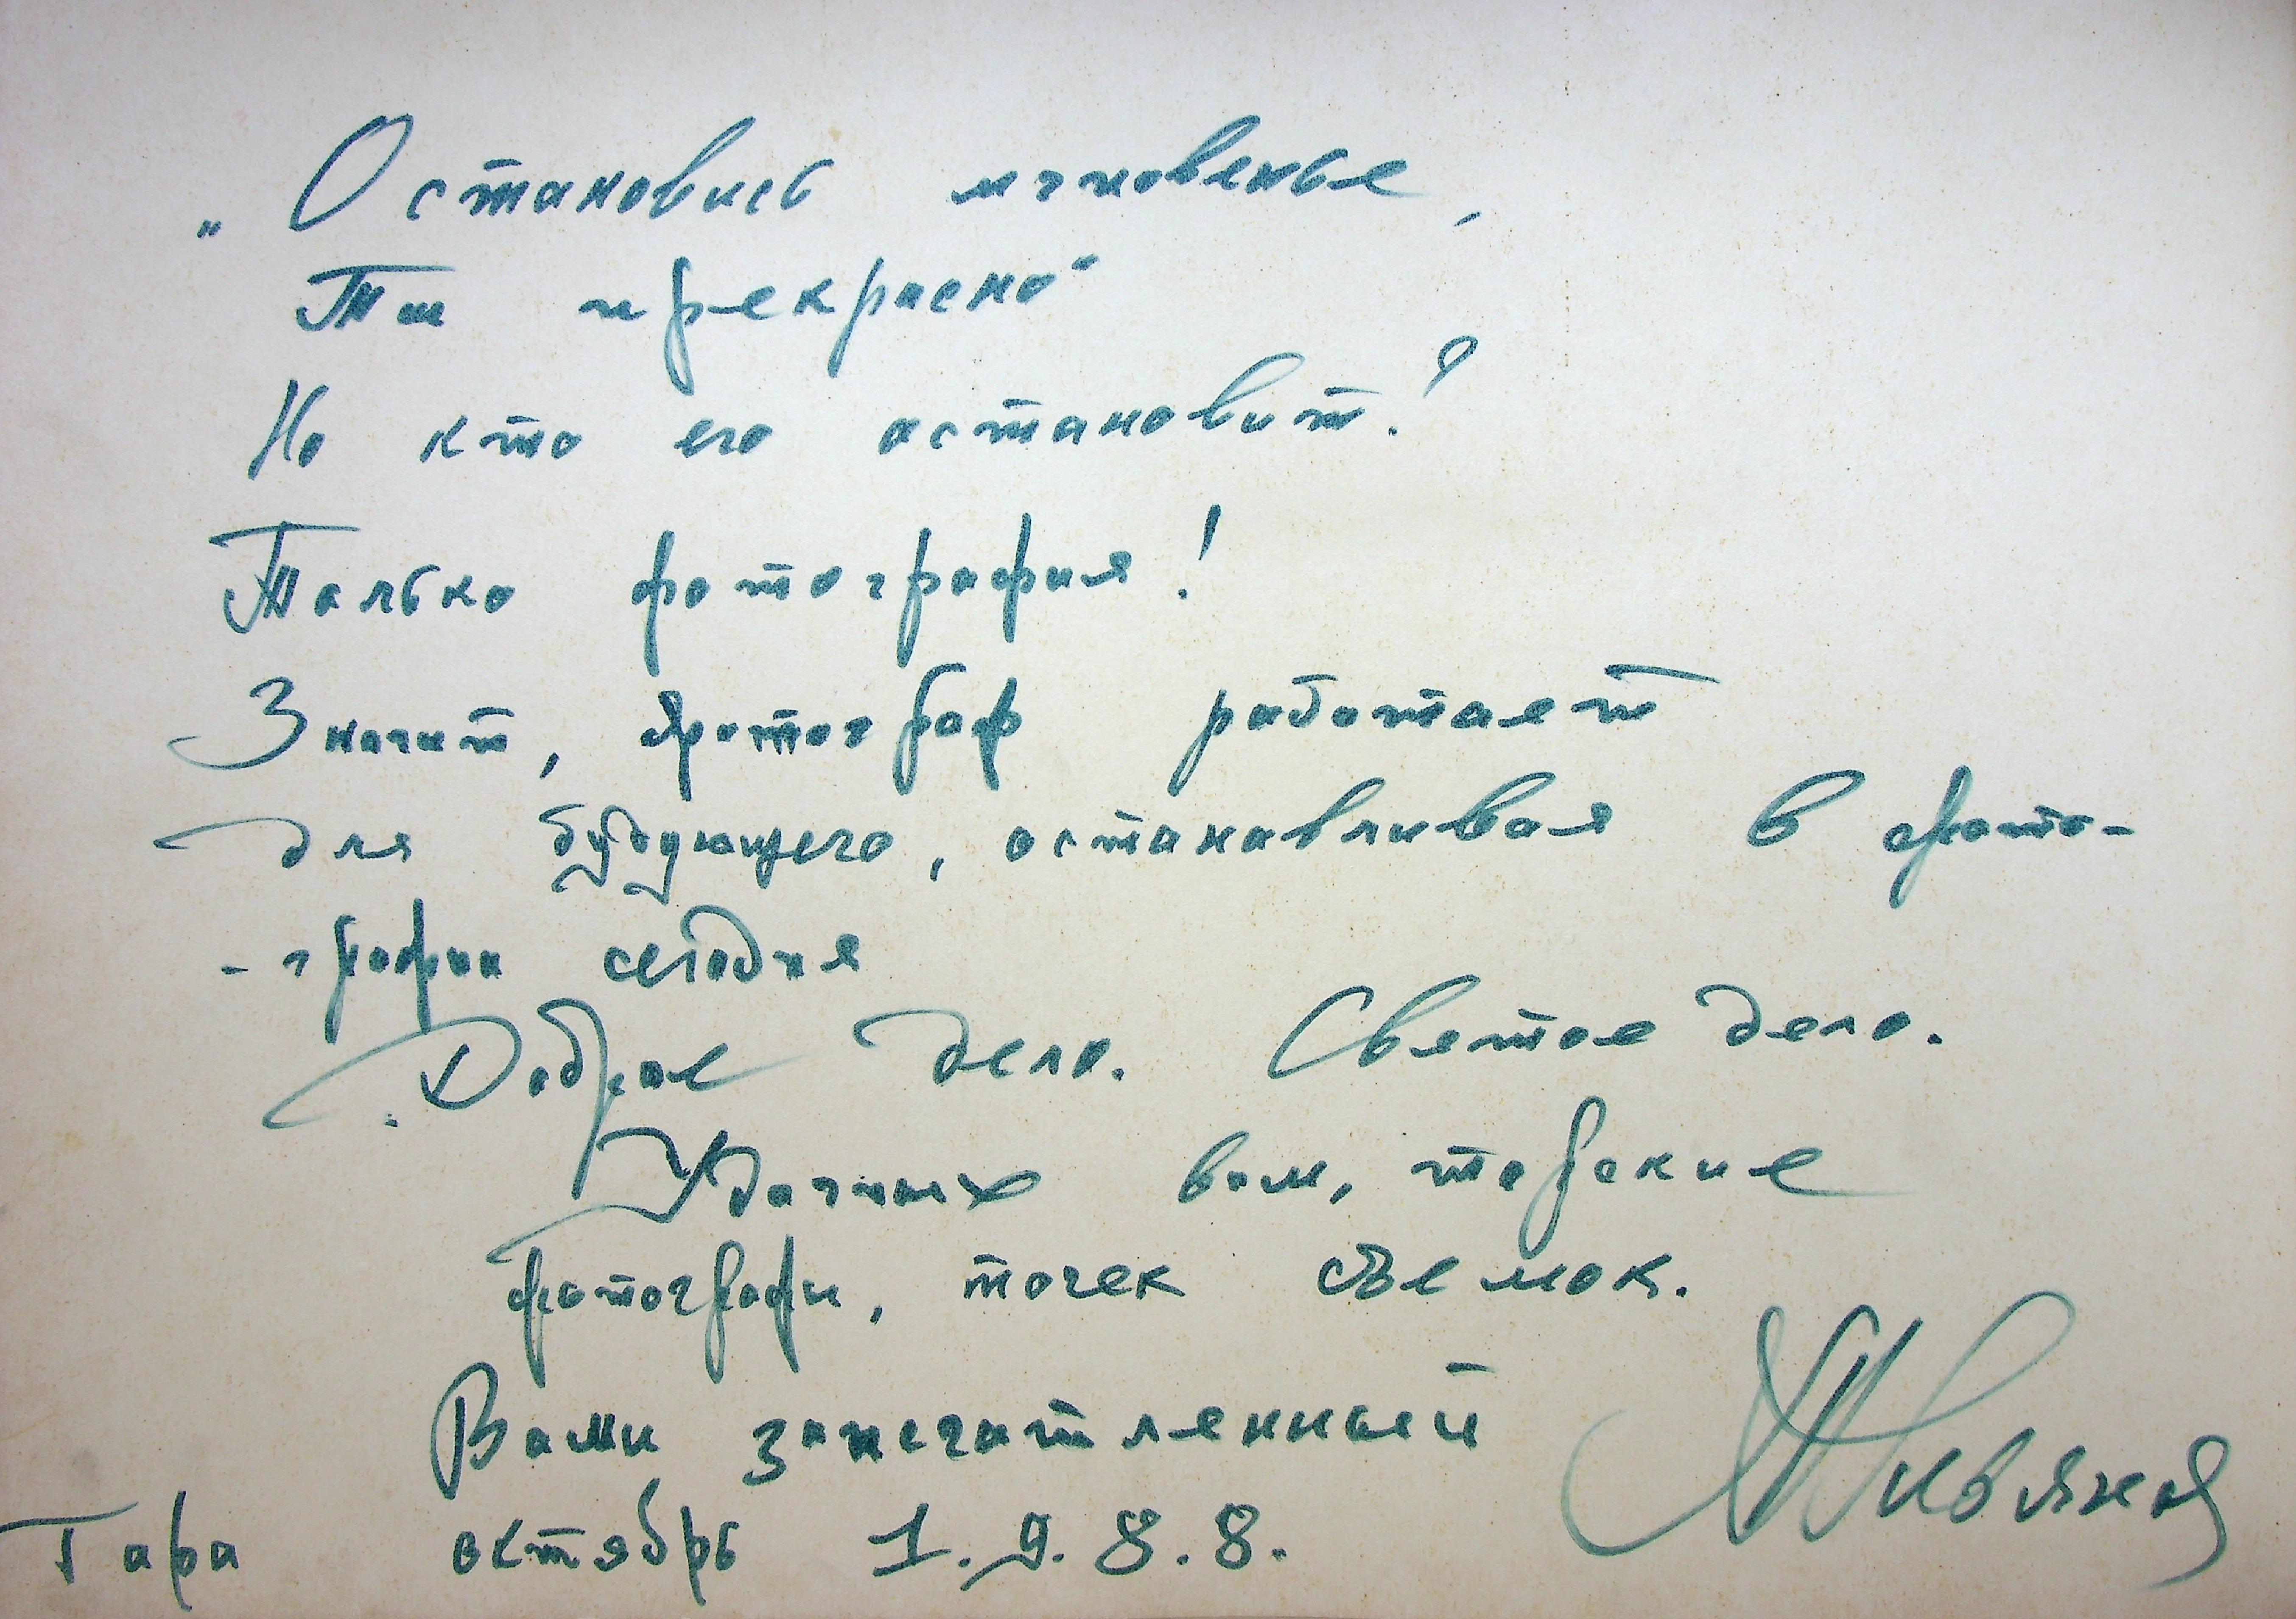 „Остановись мгновенье,
Ты прекрасно"
Но кто его остановит?
Только фотография!
Значит, фотограф работает
для будующего, останавливая в фото-
-графии сегодня
Доброе дело. Святое дело.
Удачных вам, тарские
фотографы, точек съемок.
Вами запечатленный
Тара октябрь 1.9.8.8.